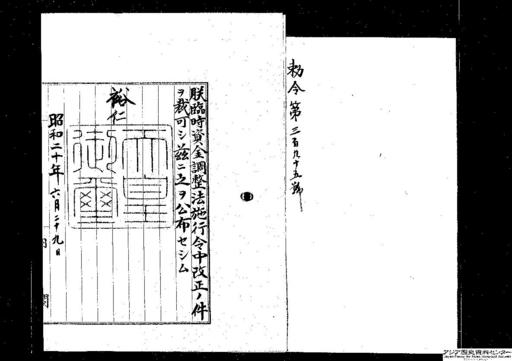 勅令第三百九十五號
朕臨時資金調整法施行令中改正ノ件
ヲ裁可シ茲ニ之ヲ公布セシム
裕仁
天皇御璽
昭和二十年六月二十九日
内閣
アジア歴史資料センター
Japan Center for Asian Historical Records